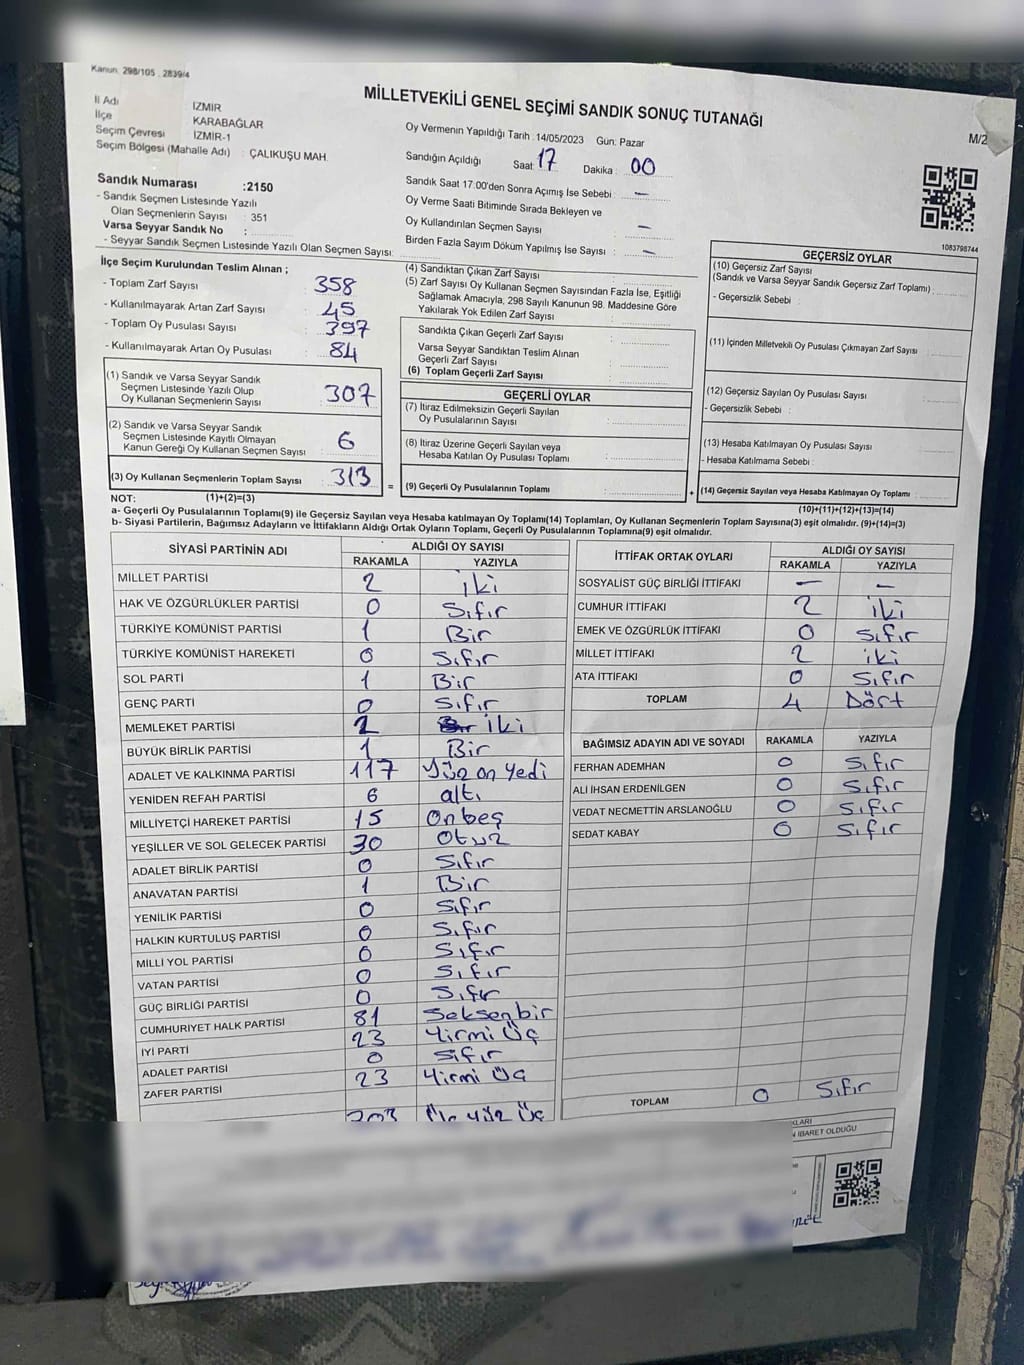 Kanun: 298/105 , 2839/4
MİLLETVEKİLİ GENEL SEÇİMİ SANDIK SONUÇ TUTANAĞI
M/2
İl Adı İZMİR
İlçe KARABAĞLAR
Seçim Çevresi İZMİR-1
Seçim Bölgesi (Mahalle Adı) : ÇALIKUŞU MAH.
Oy Vermenin Yapıldığı Tarih : 14/05/2023 Gün: Pazar
Sandığın Açıldığı Saat : 17 Dakika : 00
Sandık Saat 17:00'den Sonra Açımış İse Sebebi : —
Oy Verme Saati Bitiminde Sırada Bekleyen ve
Oy Kullandırılan Seçmen Sayısı : —
Birden Fazla Sayım Döküm Yapılmış İse Sayısı : —
Sandık Numarası :2150
- Sandık Seçmen Listesinde Yazılı
Olan Seçmenlerin Sayısı : 351
Varsa Seyyar Sandık No :
- Seyyar Sandık Seçmen Listesinde Yazılı Olan Seçmen Sayısı:
1083798744
İlçe Seçim Kurulundan Teslim Alınan ;
- Toplam Zarf Sayısı : 358
- Kullanılmayarak Artan Zarf Sayısı : 45
- Toplam Oy Pusulası Sayısı : 397
- Kullanılmayarak Artan Oy Pusulası : 84
(1) Sandık ve Varsa Seyyar Sandık
Seçmen Listesinde Yazılı Olup
Oy Kullanan Seçmenlerin Sayısı : 307
(2) Sandık ve Varsa Seyyar Sandık
Seçmen Listesinde Kayıtlı Olmayan
Kanun Gereği Oy Kullanan Seçmen Sayısı : 6
(3) Oy Kullanan Seçmenlerin Toplam Sayısı : 313
(1)+(2)=(3)
(4) Sandıktan Çıkan Zarf Sayısı :
(5) Zarf Sayısı Oy Kullanan Seçmen Sayısından Fazla İse, Eşitliği
Sağlamak Amacıyla, 298 Sayılı Kanunun 98. Maddesine Göre
Yakılarak Yok Edilen Zarf Sayısı :
Sandıkta Çıkan Geçerli Zarf Sayısı :
Varsa Seyyar Sandıktan Teslim Alınan
Geçerli Zarf Sayısı :
(6) Toplam Geçerli Zarf Sayısı :
GEÇERLİ OYLAR
(7) İtiraz Edilmeksizin Geçerli Sayılan
Oy Pusulalarının Sayısı :
(8) İtiraz Üzerine Geçerli Sayılan veya
Hesaba Katılan Oy Pusulası Toplamı :
= (9) Geçerli Oy Pusulalarının Toplamı : +
GEÇERSİZ OYLAR
(10) Geçersiz Zarf Sayısı
(Sandık ve Varsa Seyyar Sandık Geçersiz Zarf Toplamı) :
- Geçersizlik Sebebi :
(11) İçinden Milletvekili Oy Pusulası Çıkmayan Zarf Sayısı :
(12) Geçersiz Sayılan Oy Pusulası Sayısı :
- Geçersizlik Sebebi :
(13) Hesaba Katılmayan Oy Pusulası Sayısı :
- Hesaba Katılmama Sebebi :
(14) Geçersiz Sayılan veya Hesaba Katılmayan Oy Toplamı :
(10)+(11)+(12)+(13)=(14)
NOT:
a- Geçerli Oy Pusulalarının Toplamı(9) ile Geçersiz Sayılan veya Hesaba katılmayan Oy Toplamı(14) Toplamları, Oy Kullanan Seçmenlerin Toplam Sayısına(3) eşit olmalıdır. (9)+(14)=(3)
b- Siyasi Partilerin, Bağımsız Adayların ve İttifakların Aldığı Ortak Oyların Toplamı, Geçerli Oy Pusulalarının Toplamına(9) eşit olmalıdır.
SİYASİ PARTİNİN ADI ALDIĞI OY SAYISI
RAKAMLA YAZIYLA
MİLLET PARTİSİ 2 iki
HAK VE ÖZGÜRLÜKLER PARTİSİ 0 Sıfır
TÜRKİYE KOMÜNİST PARTİSİ 1 Bir
TÜRKİYE KOMÜNİST HAREKETİ 0 Sıfır
SOL PARTİ 1 Bir
GENÇ PARTİ 0 Sıfır
MEMLEKET PARTİSİ 2 iki
BÜYÜK BİRLİK PARTİSİ 1 Bir
ADALET VE KALKINMA PARTİSİ 117 Yüz on yedi
YENİDEN REFAH PARTİSİ 6 altı
MİLLİYETÇİ HAREKET PARTİSİ 15 Onbeş
YEŞİLLER VE SOL GELECEK PARTİSİ 30 Otuz
ADALET BİRLİK PARTİSİ 0 Sıfır
ANAVATAN PARTİSİ 1 Bir
YENİLİK PARTİSİ 0 Sıfır
HALKIN KURTULUŞ PARTİSİ 0 Sıfır
MİLLİ YOL PARTİSİ 0 Sıfır
VATAN PARTİSİ 0 Sıfır
GÜÇ BİRLİĞİ PARTİSİ 0 Sıfır
CUMHURİYET HALK PARTİSİ 81 Seksenbir
İYİ PARTİ 23 Yirmi Üç
ADALET PARTİSİ 0 Sıfır
ZAFER PARTİSİ 23 Yirmi Üç
303 Üç Yüz Üç
İTTİFAK ORTAK OYLARI ALDIĞI OY SAYISI
RAKAMLA YAZIYLA
SOSYALİST GÜÇ BİRLİĞİ İTTİFAKI — —
CUMHUR İTTİFAKI 2 iki
EMEK VE ÖZGÜRLÜK İTTİFAKI 0 Sıfır
MİLLET İTTİFAKI 2 iki
ATA İTTİFAKI 0 Sıfır
TOPLAM 4 Dört
BAĞIMSIZ ADAYIN ADI VE SOYADI RAKAMLA YAZIYLA
FERHAN ADEMHAN 0 Sıfır
ALİ İHSAN ERDENİLGEN 0 Sıfır
VEDAT NECMETTİN ARSLANOĞLU 0 Sıfır
SEDAT KABAY 0 Sıfır
TOPLAM 0 Sıfır
İBARET OLDUĞU